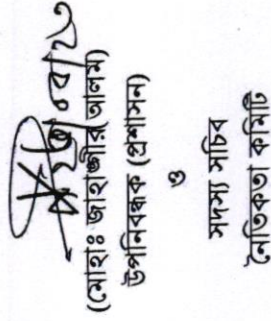 (মোহাঃ জাহাঙ্গীর আলম)
উপনিবন্ধক (প্রশাসন)
ও
সদস্য সচিব
নৈতিকতা কমিটি